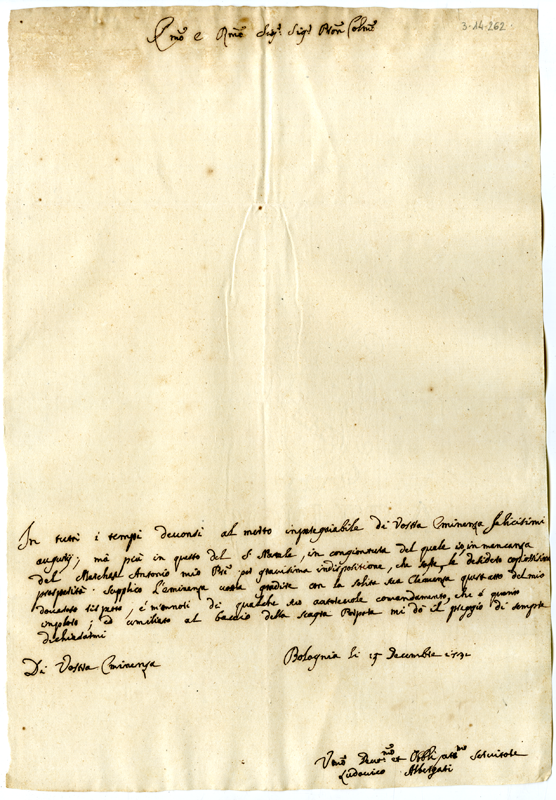 Em.mo e Rmo Sig.r Sig.r Pron Colmo
3-14-262
In tutti i tempi devonsi al merito impareggiabile di Vostra Eminenza felicissimi
augurij; mà più in questo del S. Natale, in congiontura del quale io in mancanza
del Marchese Antonio mio per gravissima indisposizione, che soffre, le desidero copiosissime
prosperità. Supplico l'Eminenza vostra gradire con la solita sua Clemenza quest'atto del mio
doveroso rispetto, è m'onori di qualche suo autorevole comandamento, che è quanto
imploro; ed umiliato al baccio della Sacra Porpora mi dò il preggio di sempre
dichiararmi
Di Vostra Eminenza
Bologna li 15 Decembre
Vmo Devmo et Obbligatmo Servitore
Ludovico Albergati